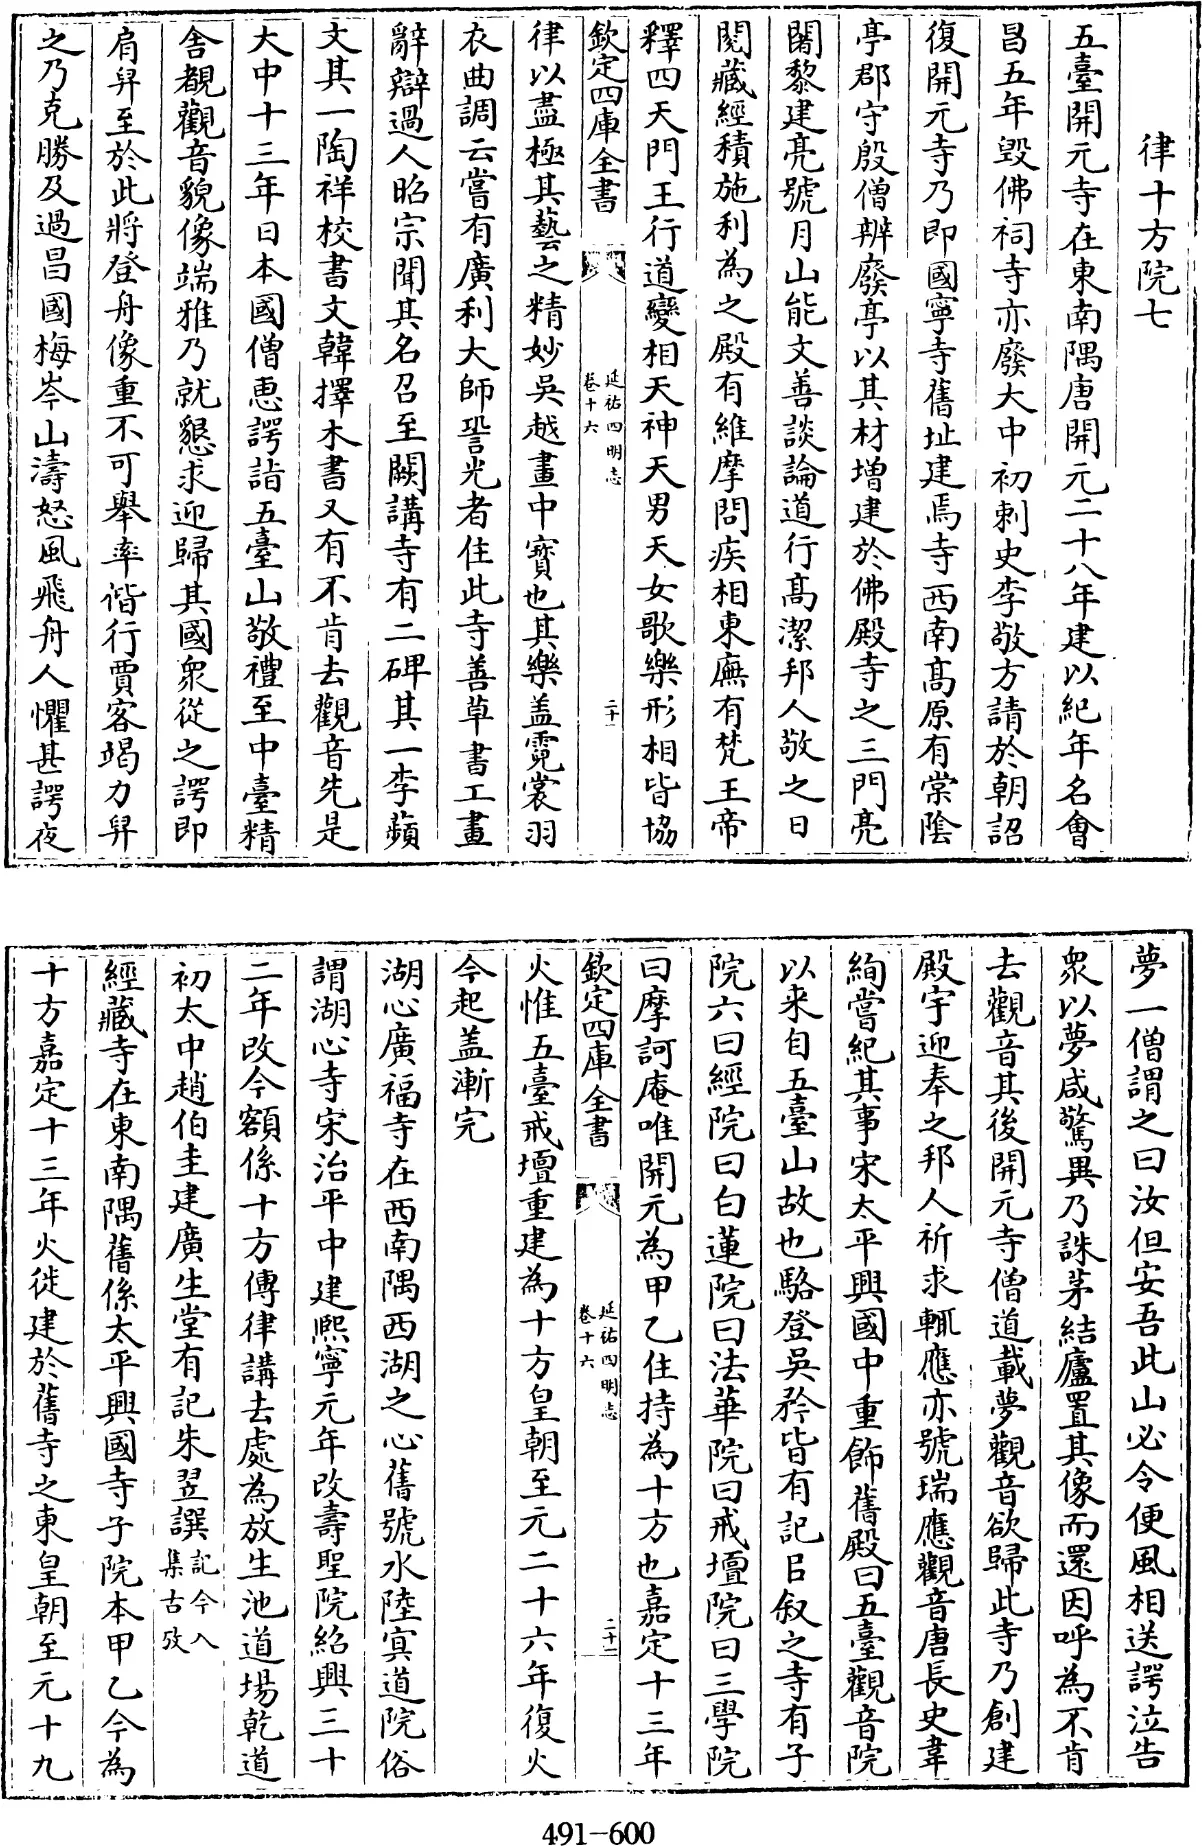 律十方院七
五臺開元寺在東南隅唐開元二十八年建以紀年名會
昌五年毀佛祠寺亦廢大中初刺史李敬方請於朝詔
復開元寺乃即國寧寺舊址建焉寺西南高原有棠陰
亭郡守殷僧辨廢亭以其材增建於佛殿寺之三門亮
闍黎建亮號月山能文善談論道行高潔邦人敬之日
閱藏經積施利為之殿有維摩問疾相東廡有梵王帝
釋四天門王行道變相天神天男天女歌樂形相皆協
欽定四庫全書
延祐四明志
卷十六
二十一
律以盡極其藝之精妙吳越畫中寳也其樂盖霓裳羽
衣曲調云嘗有廣利大師䛒光者住此寺善草書工畫
辭辯過人昭宗聞其名召至闕講寺有二碑其一李蘋
文其一陶祥校書文韓擇木書又有不肯去觀音先是
大中十三年日本國僧惠諤詣五臺山敬禮至中臺精
舍覩觀音貌像端雅乃就懇求迎歸其國衆從之諤即
肩舁至於此將登舟像重不可舉率偕行賈客竭力舁
之乃克勝及過昌國梅岑山濤怒風飛舟人懼甚諤夜
夢一僧謂之曰汝但安吾此山必令便風相送諤泣告
衆以夢咸驚異乃誅茅結廬置其像而還因呼為不肯
去觀音其後開元寺僧道載夢觀音欲歸此寺乃創建
殿宇迎奉之邦人祈求輒應亦號瑞應觀音唐長史韋
絢嘗紀其事宋太平興國中重飾舊殿曰五臺觀音院
以來自五臺山故也駱登吳矜皆有記㠯叙之寺有子
院六曰經院曰白蓮院曰法華院曰戒壇院曰三學院
曰摩訶庵唯開元為甲乙住持為十方也嘉定十三年
欽定四庫全書
延祐四明志
卷十六
二十二
火惟五臺戒壇重建為十方皇朝至元二十六年復火
今起盖漸完
湖心廣福寺在西南隅西湖之心舊號水陸㝠道院俗
謂湖心寺宋治平中建熙寧元年改壽聖院紹興三十
二年改今額係十方傳律講去處為放生池道場乾道
初太中趙伯圭建廣生堂有記朱翌譔記今入集古攷
經藏寺在東南隅舊係太平興國寺子院本甲乙今為
十方嘉定十三年火徙建於舊寺之東皇朝至元十九
491-600